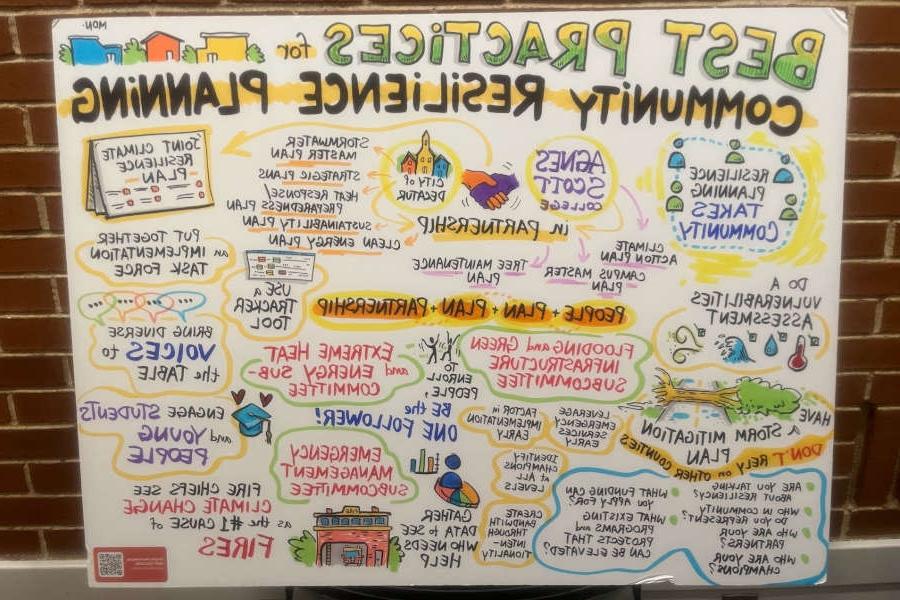 BEST PRACTICES for
COMMUNITY RESILIENCE PLANNING
RESILIENCE
PLANNING
TAKES
COMMUNITY
AGNES
SCOTT
COLLEGE
CITY of
DECATUR
in PARTNERSHIP
CLIMATE
ACTION PLAN
CAMPUS MASTER
PLAN
TREE MAINTENANCE
PLAN
STORMWATER
MASTER PLAN
STRATEGIC PLANS
HEAT RESPONSE/
PREPAREDNESS PLAN
SUSTAINABILITY PLAN
CLEAN ENERGY PLAN
JOINT CLIMATE
RESILIENCE
PLAN
PUT TOGETHER
an IMPLEMENTATION
TASK FORCE
USE A
TRACKER
TOOL
PEOPLE + PLAN + PLAN + PARTNERSHIP
DO A
VULNERABILITIES
ASSESSMENT
FLOODING and GREEN
INFRASTRUCTURE
SUBCOMMITTEE
TO
ENROLL
PEOPLE,
BE the
ONE FOLLOWER!
EXTREME HEAT
and ENERGY SUB-
COMMITTEE
BRING DIVERSE
VOICES to
the TABLE
HAVE
A STORM MITIGATION
PLAN
DON'T RELY on OTHER COUNTIES
LEVERAGE
EMERGENCY
SERVICES
EARLY
FACTOR in
IMPLEMENTATION
EARLY
IDENTIFY
CHAMPIONS
at ALL
LEVELS
CREATE
BANDWIDTH
THROUGH
INTEN-
TIONALITY
EMERGENCY
MANAGEMENT
SUBCOMMITTEE
ENGAGE STUDENTS
and YOUNG
PEOPLE
ARE YOU TALKING
ABOUT RESILIENCY?
WHO IN COMMUNITY
DO YOU REPRESENT?
WHO ARE YOUR
PARTNERS?
WHO ARE YOUR
CHAMPIONS?
WHAT FUNDING CAN
YOU APPLY FOR?
WHAT EXISTING
PROGRAMS and
PROJECTS THAT
CAN BE ELEVATED?
GATHER
DATA to SEE
WHO NEEDS
HELP
FIRE
FIRE CHIEFS SEE
CLIMATE CHANGE
as the #1 CAUSE of
FIRES